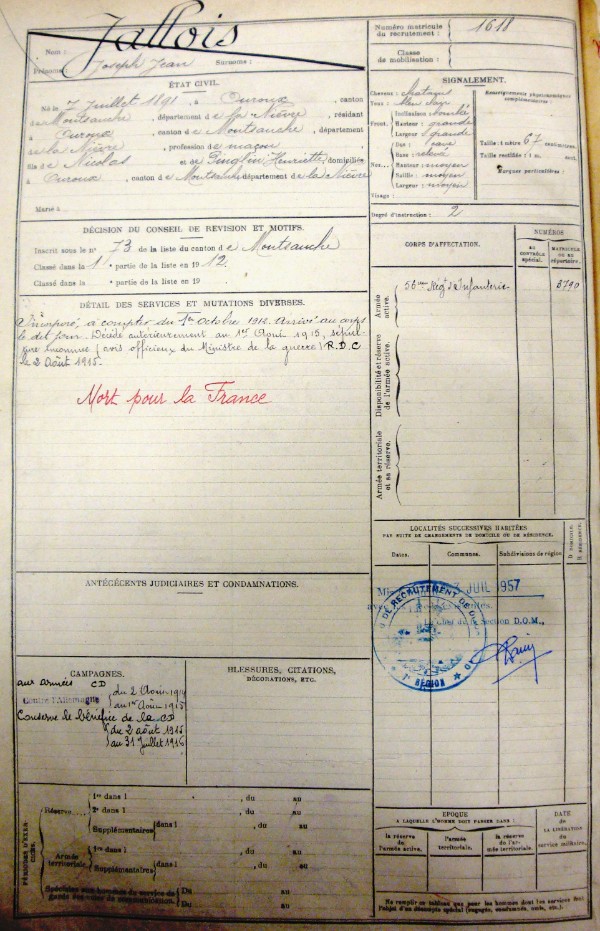 Nom : Jallois
Prénoms : Joseph Jean Surnoms :
Numéro matricule du recrutement : 1618
Classe de mobilisation :
ÉTAT CIVIL.
Né le 7 Juillet 1891, à Ouroux, canton
de Montsauche, département de la Nièvre, résidant
à Ouroux, canton de Montsauche, département
de la Nièvre, profession de maçon
fils de Nicolas et de Henriette, domiciliés
à Ouroux, canton de Montsauche, département de la Nièvre
Marié à
SIGNALEMENT.
Cheveux : chatains
Yeux : bleu clair
Front Inclinaison :
Hauteur : grande
Largeur : grande
Nez Dos : cave
Base : relevée
Hauteur : moyen
Saillie : moyen
Largeur : moyen
Visage :
Renseignements physionomiques complémentaires :
Taille : 1 mètre 67 centimètres.
Taille rectifiée : 1 m. cent.
Marques particulières :
Degré d'instruction : 2
DÉCISION DU CONSEIL DE REVISION ET MOTIFS.
Inscrit sous le n° 73 de la liste du canton de Montsauche
Classé dans la 1e partie de la liste en 1912.
Classé dans la partie de la liste en 19
CORPS D'AFFECTATION.
NUMÉROS
AU CONTRÔLE SPÉCIAL.
MATRICULE OU AU RÉPERTOIRE.
Armée active.
56ème Régt d'Infanterie
3790
Disponibilité et réserve de l'armée active.
Armée territoriale et sa réserve.
DÉTAIL DES SERVICES ET MUTATIONS DIVERSES.
Incorporé, à compter du 1er Octobre 1912. Arrivé au corps
le dit jour. Décédé antérieurement au 1er Août 1915, sépul-
ture inconnue (avis officieux du Ministre de la guerre) R.D.C
le 2 Août 1915.
Mort pour la France
LOCALITÉS SUCCESSIVES HABITÉES
PAR SUITE DE CHANGEMENTS DE DOMICILE OU DE RÉSIDENCE.
Dates.
Communes.
Subdivisions de région.
D DOMICILE.
R RÉSIDENCE.
JUIL 1957
Le Chef de la Section D.O.M.,
DE RECRUTEMENT DE
RÉGION
ANTÉCÉDENTS JUDICIAIRES ET CONDAMNATIONS.
CAMPAGNES.
aux armées CD
Contre l'Allemagne
du 2 Août 1914
au 1er Août 1915
Conserve le bénéfice de la CD
du 2 août 1915
au 31 Juillet 1916
BLESSURES, CITATIONS,
DÉCORATIONS, ETC.
PÉRIODES D'EXERCICES.
Réserve
1re dans l , du au
2e dans l , du au
Supplémentaires dans l , du au
Armée territoriale
1re dans l , du au
Supplémentaires dans l , du au
Spéciales aux hommes du service de garde des voies de communication.
Du au
Du au
EPOQUE
A LAQUELLE L'HOMME DOIT PASSER DANS :
la réserve de l'armée active.
l'armée territoriale.
la réserve de l'armée territoriale.
DATE de LA LIBÉRATION du service militaire.
Ne remplir ce tableau que pour les hommes dont les services font l'objet d'un décompte spécial (engagés, condamnés, omis, etc.).